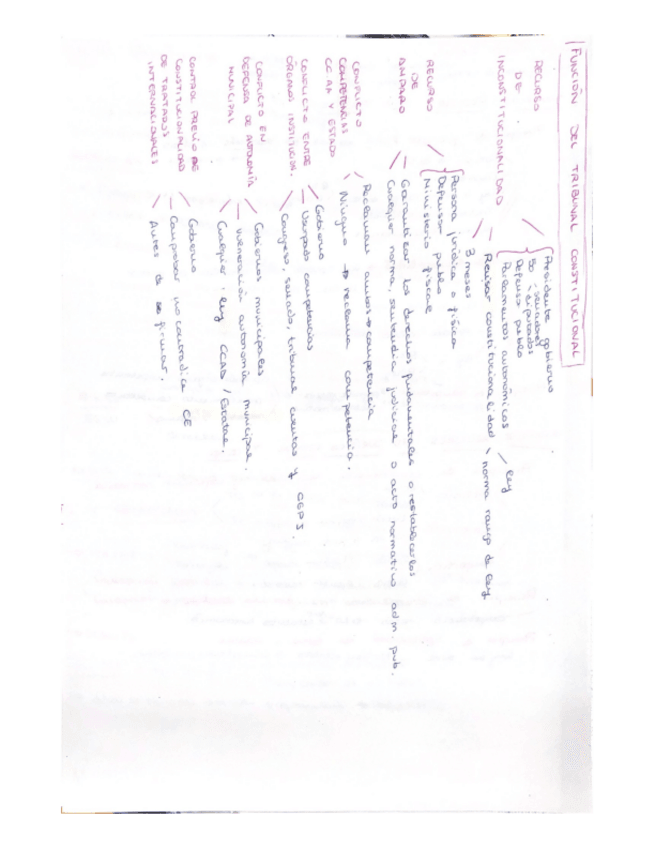 FUNCIÓN DEL TRIBUNAL CONSTITUCIONAL
RECURSO DE INCONSTITUCIONALIDAD
Presidente gobierno
50 senadores
diputados
Defensor pueblo
Parlamentos autonómicos / ley
Revisar constitucionalidad \ norma rango de ley
3 meses
RECURSO DE AMPARO
Persona jurídica o física
Defensor pueblo
Ministerio fiscal
Garantizar los derechos fundamentales o restablecerlos
Cualquier norma, sentencia judicial o acto normativo adm. pub.
CONFLICTO COMPETENCIAS CC.AA Y ESTADO
Reclaman ambos → competencia
Ninguno → reclama competencia.
CONFLICTO ENTRE ÓRGANOS INSTITUCION.
Gobierno
Usurpado competencias
Congreso, senado, tribunal cuentas y CGPJ.
CONFLICTO EN DEFENSA DE AUTONOMÍA MUNICIPAL
Gobiernos municipales
vulneración autonomía municipal.
Cualquier ley CCAA / Estatal.
CONTROL PREVIO DE CONSTITUCIONALIDAD DE TRATADOS INTERNACIONALES
Gobierno
Comprobar no contradice CE
Antes de firmar.